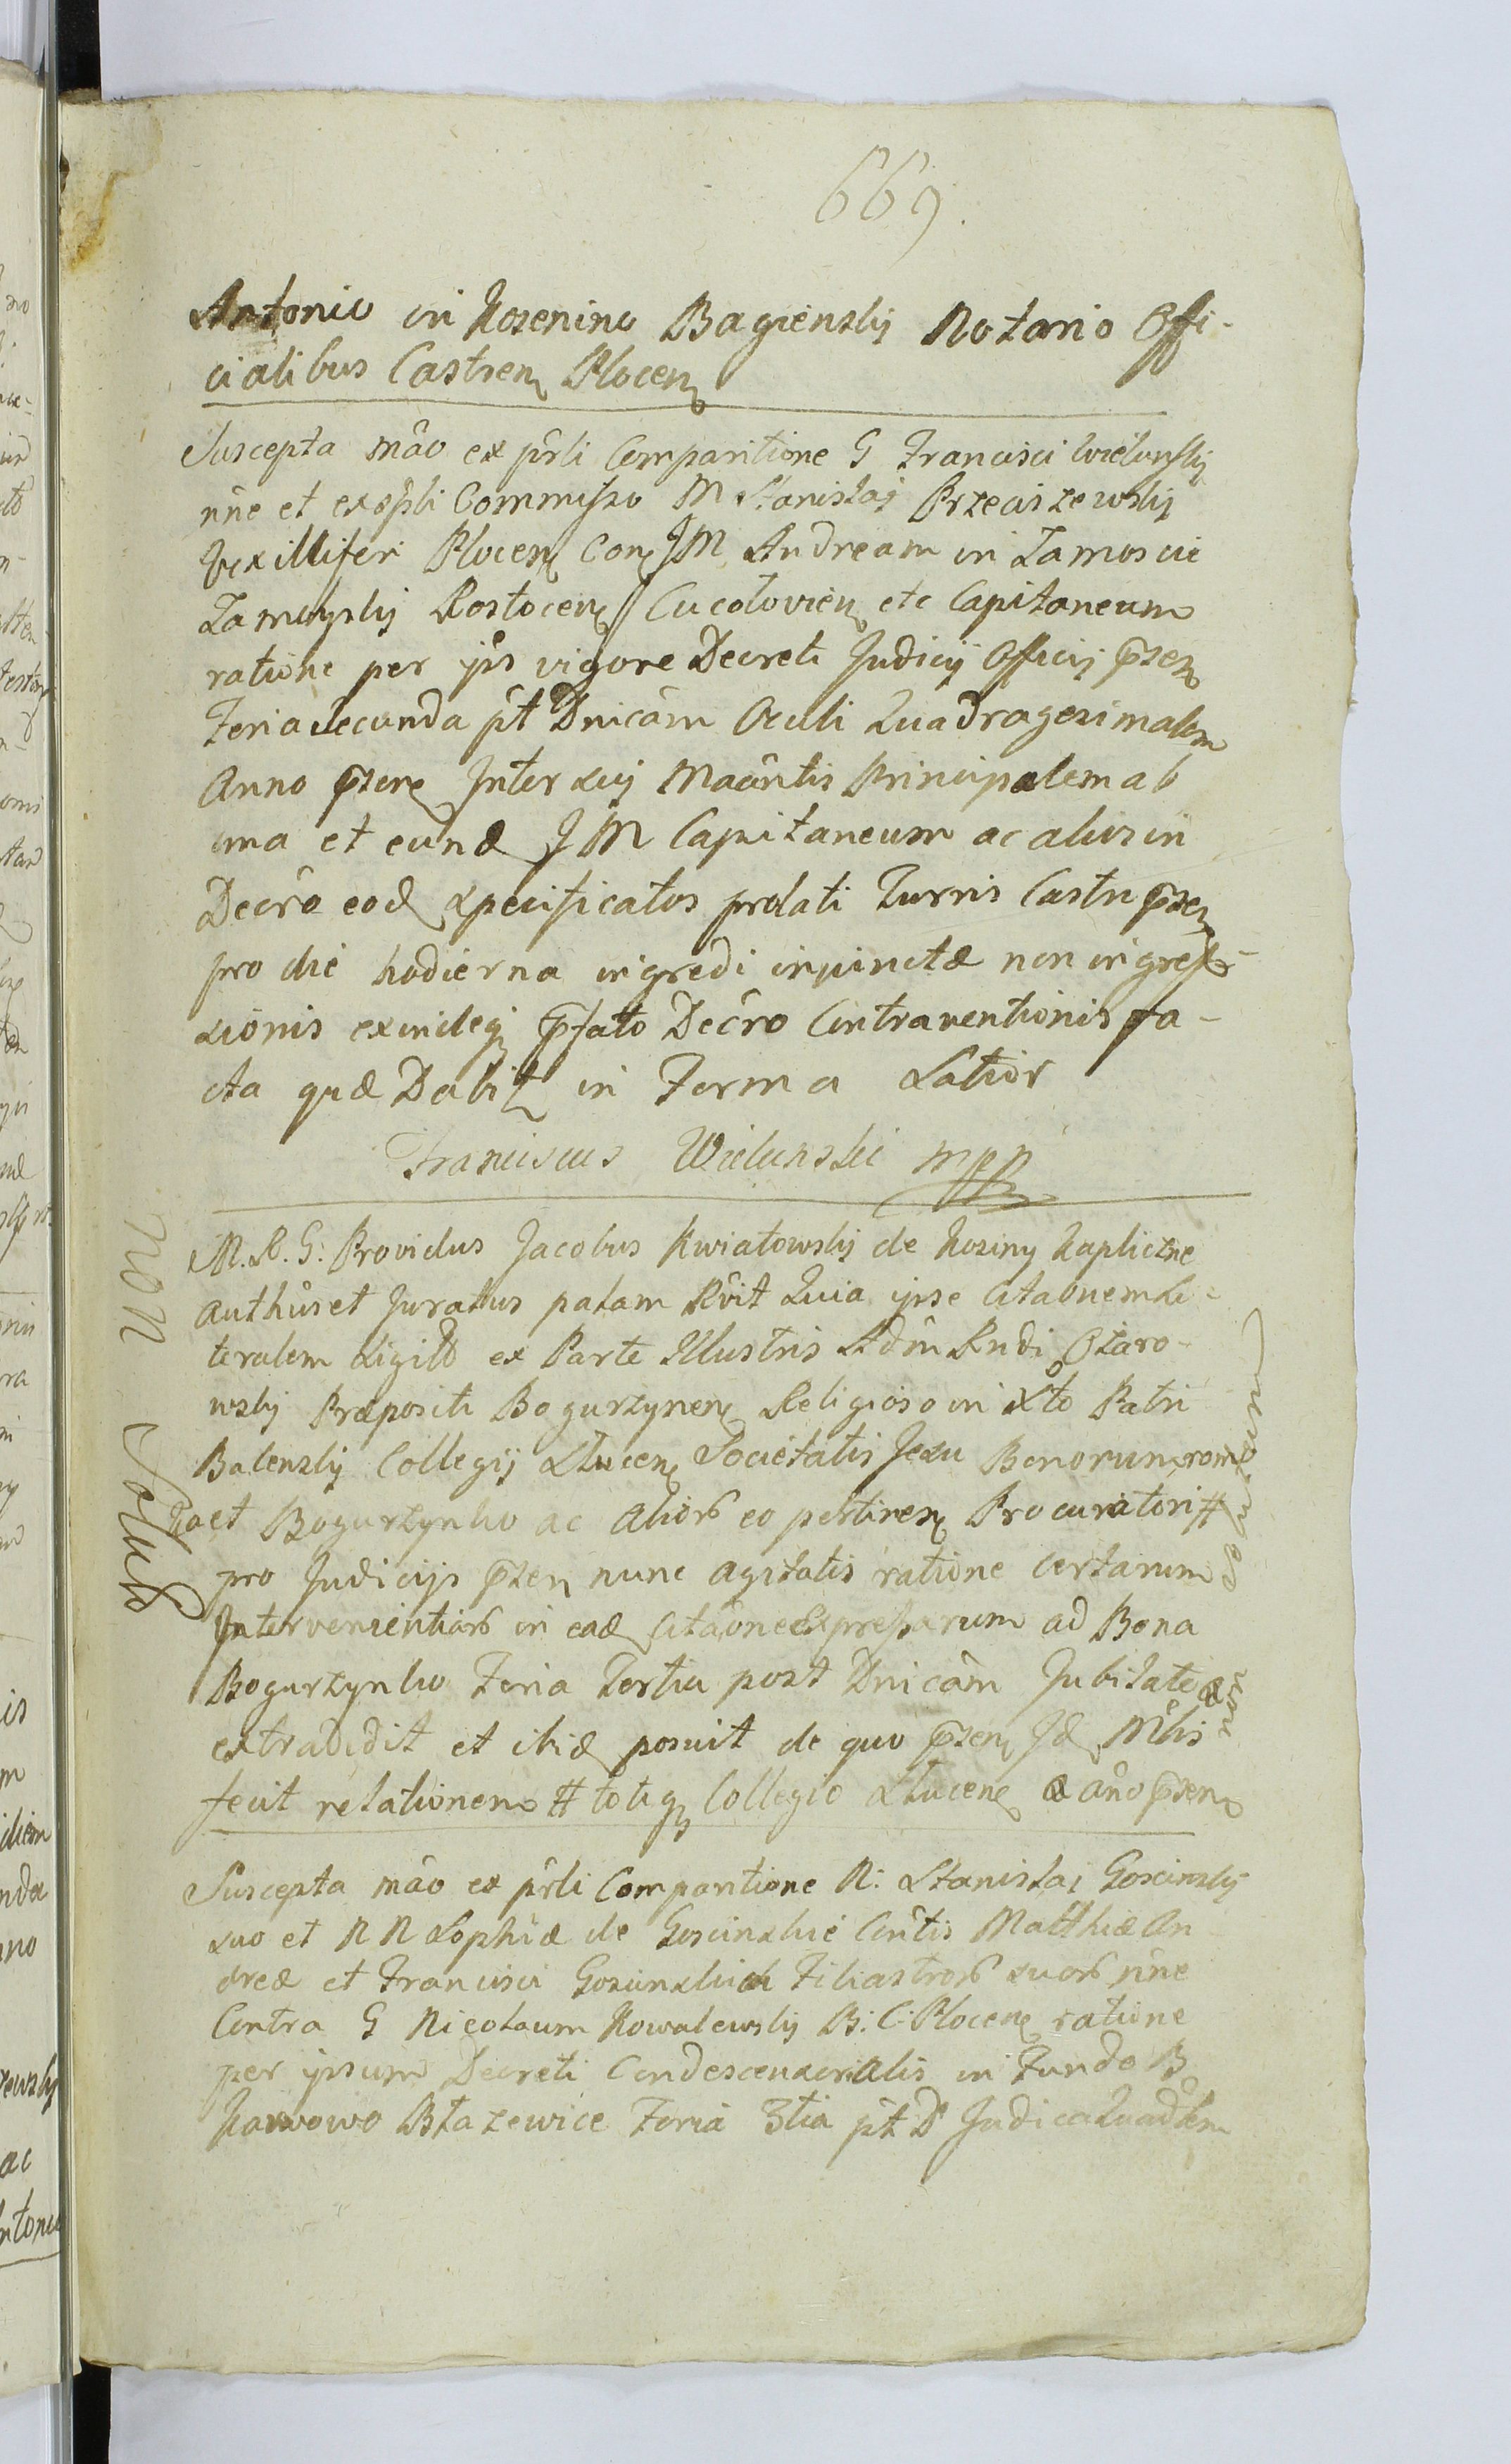 669.
Antonio in Kosenino Bagienskij Notario Offi-
cialibus Castren Plocen
Suscepta mâo ex pŝrli Comparitione G Francisci Wielunskij
nĩne et exspl̂i Commisso M Stanislaj Przeciszewskij
Vexilliferi Plocen Con JM Andream in Zamoscie
Zamoyskij Rostocen Cucolovien etc Capitaneum
ratione per jps̃ vigore Decreti Judicij Officij p̃sen
Feria secunda p̂t Dnicâm Oculi Quadragesimalem
Anno p̃sen Inter suj Maântis Principalem ab
una et eund JM Capitaneum ac alios in
Decrô eod specificatos prolati Turris Castri p̃sen
pro die hodierna ingredi injunctæ non ingres-
sionis exindeq p̃fato Decr̂o Contraventionis fa-
cta quæ Dabit in Forma Latior
Franciscus Wielunski mpp
M. R. G. Providus Jacobus Kwiatowskij de Kosiny Kapliczne
authûs et Juratus palam Rŝit Quia ipse Citaõnem Li-
teralem Sigilld ex Parte Illustris Adm̂ Rndi Ożaro-
wskij Præpositi Bogurzynen Religioso in Xto Patri
Balenskij Collegij Plucen Societatis Jesu Bonorum rom
za et Bogurzynko ac aliorb eo pertinen Procuratori #
pro Judicijs p̃sen nunc agitatis ratione certarum
Intervenientiarb in ead Citaõne Expressarum ad Bona
Bogurzynko Feria Tertia post Dnicâm Jubilate
extradidit et ibid posuit de quo p̃sen Jd M̂lis
fecit relationem # totiq Collegio Plucen & ańo p̃sen
non
Solub
Suscepta mâo ex pŝrli Comparitione N: Stanislaj Goscinskij
suo et N N Sophiæ de Goscinskie Côntis Matthiæ An
dreæ et Francisci Goscinskich Filiastrorb suorb nĩne
Contra G Nicolaum Kowalewskij B: C: Plocen ratione
per ipsum Decreti Condescensorialis in Fundo B
Karwowo Błazewice Feria 3tia p̂t D Judica Quadlem